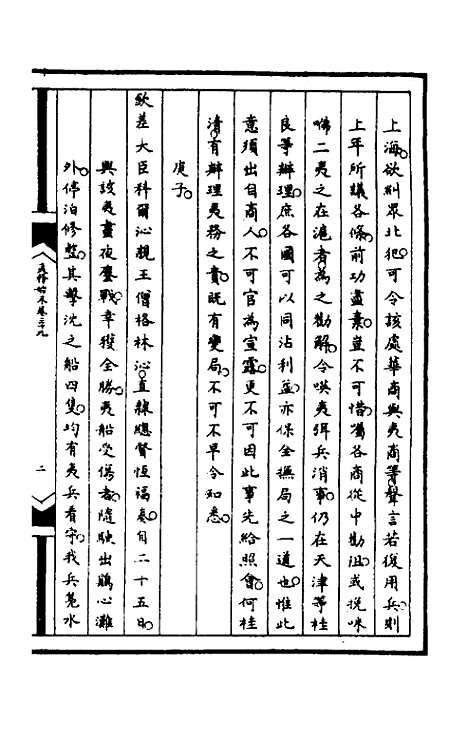 上海欲糾眾北犯可令該處華商與夷商等聲言若復用兵則
上年所議各條前功盡棄豈不可惜囑各商從中勸阻或挽咪
㗒二夷之在滬者為之勸解令㗆夷弭兵消事仍在天津等桂
良等辦理庶各國可以同沾利益亦保全撫局之一道也惟此
意須出自商人不可官為宣露更不可因此事先給照會何桂
清有辦理夷務之責既有變局不可不早令知悉
庚子
欽差大臣科爾沁親王僧格林沁直隸總督恆福奏自二十五日
與該夷晝夜鏖戰幸獲全勝夷船受傷者隨駛出鷄心灘
外停泊修整其擊沈之船四隻均有夷兵看守我兵鳧水
夷務始末卷三十九
二